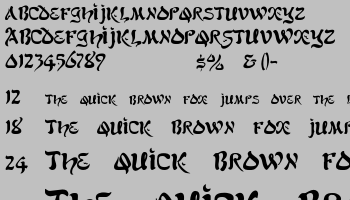 ABCDEFGHIJKLMNOPQRSTUVWXYZ
ABCDEFGHIJKLMNOPQRSTUVWXYZ
0123456789 $% & ()-
12 THE QUICK BROWN FOX JUMPS OVER THE
18 THE QUICK BROWN FOX JUM
24 THE QUICK BROWN FO